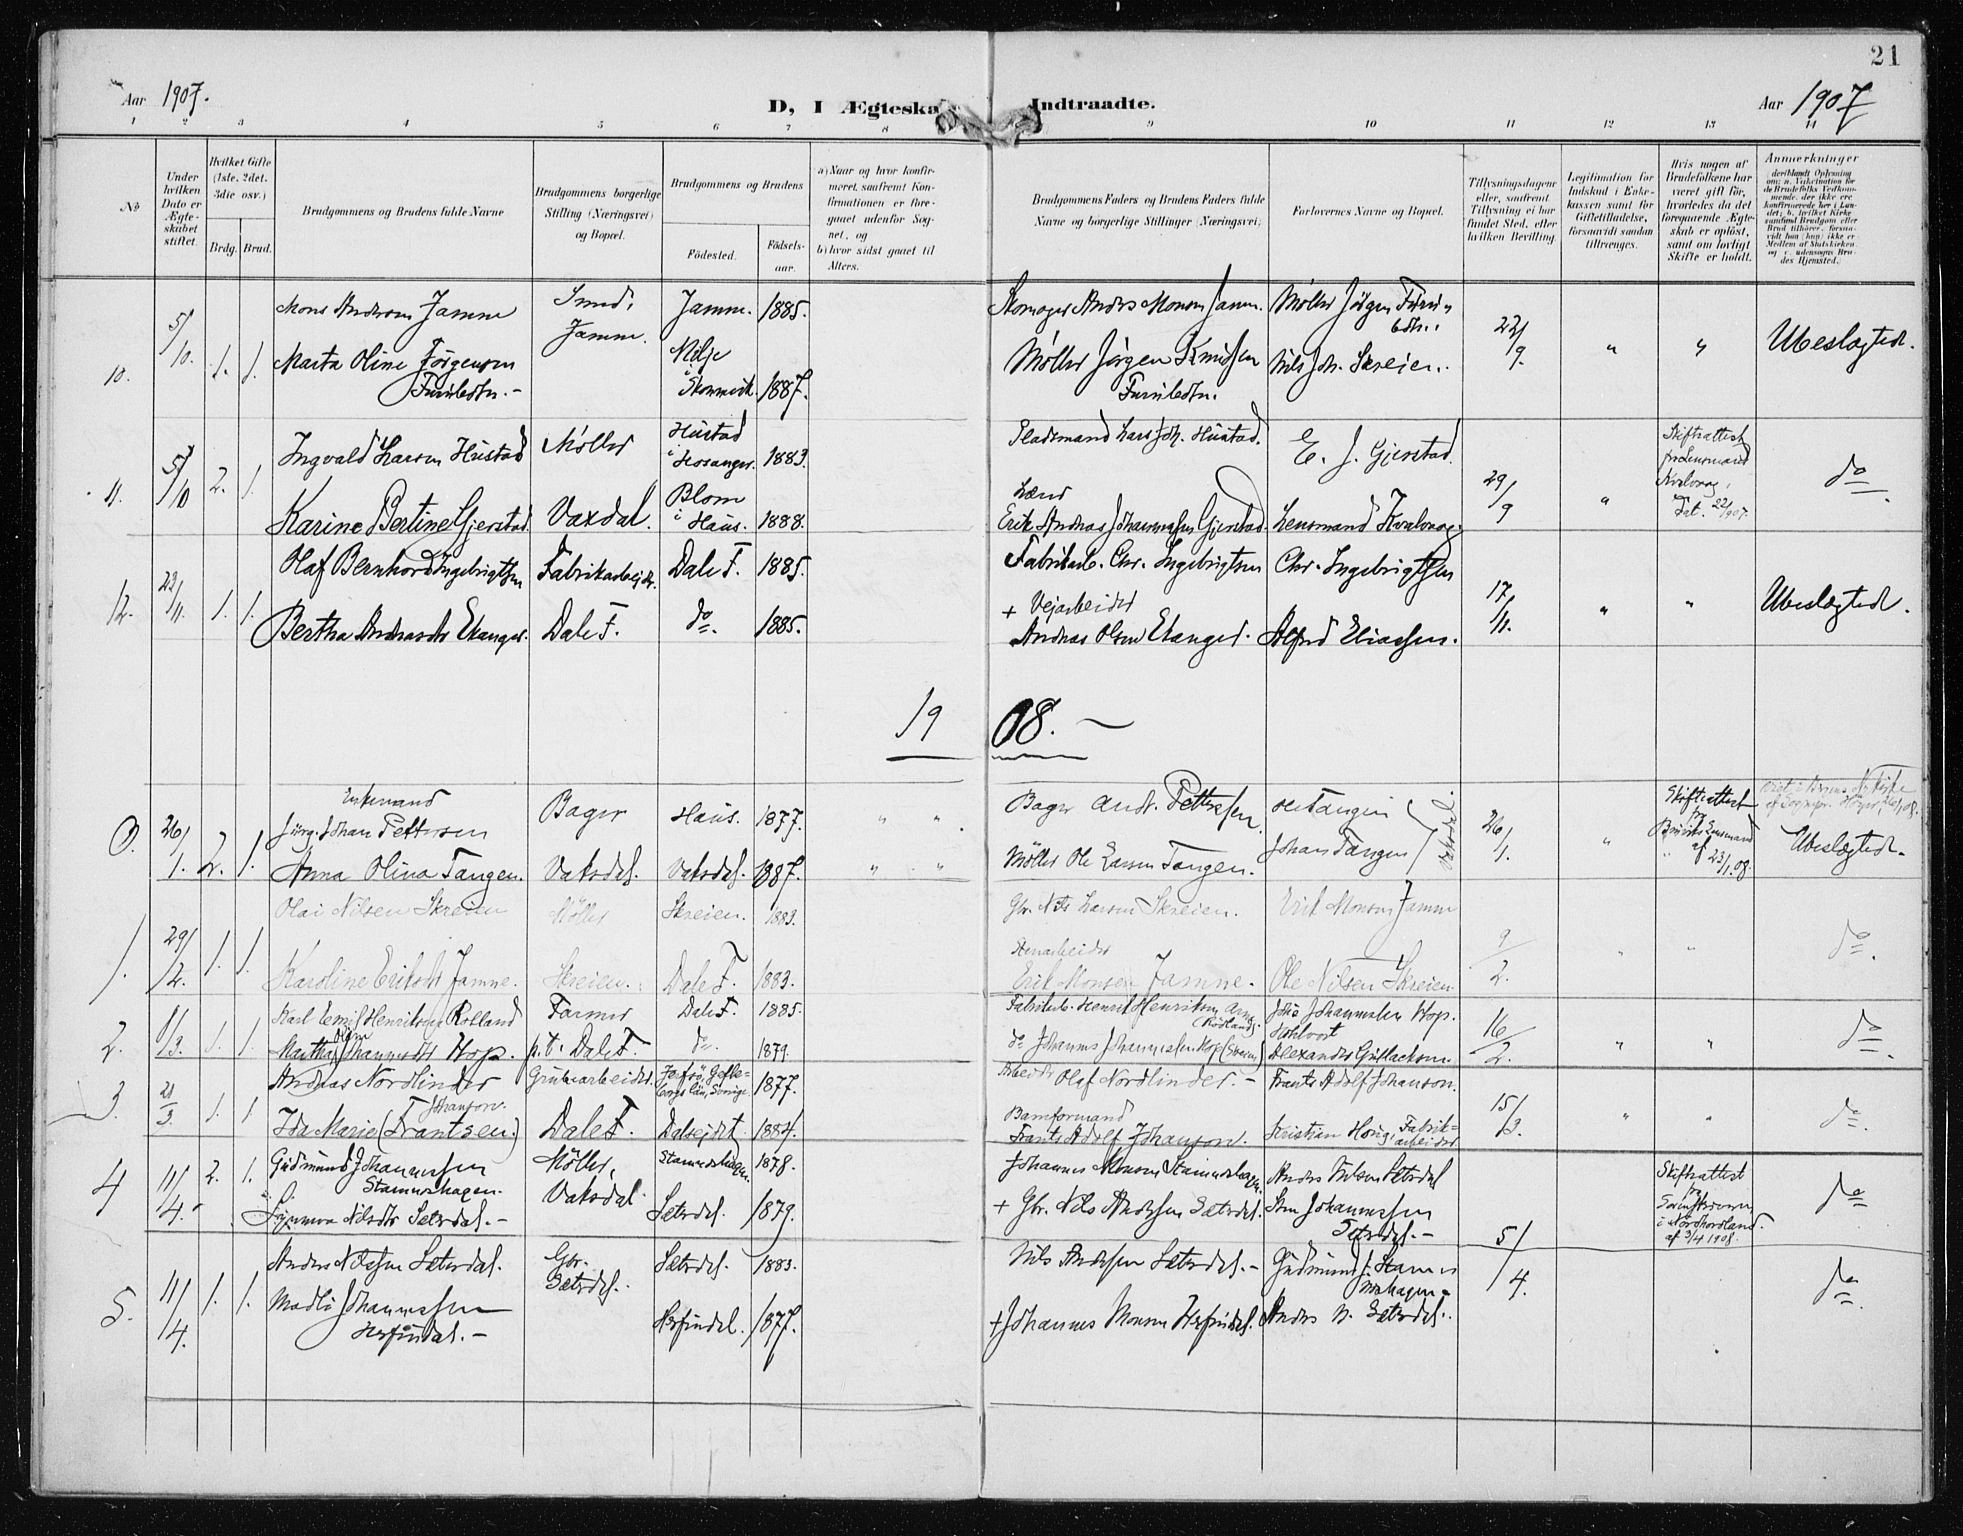 21
Aar 1907.
D, I Ægteska Indtraadte.
Aar 1907
1 2 3 4 5 6 7 8 9 10 11 12 13 14
No
Under hvilken Dato er Ægteskabet stiftet.
Hvilket Gifte (1ste, 2det, 3die osv.)
Brdg. Brud.
Brudgommens og Brudens fulde Navne
Brudgommens borgerlige Stilling (Næringsvei) og Bopæl.
Brudgommens og Brudens
Fødested.
Fødselsaar.
a) Naar og hvor konfirmeret, saafremt Konfirmationen er foregaaet udenfor Sognet, og
b) hvor sidst gaaet til Alters.
Brudgommens Faders og Brudens Faders fulde Navne og borgerlige Stillinger (Næringsvei)
Forlovernes Navne og Bopæl.
Tillysningsdagene eller, saafremt Tillysning ei har fundet Sted, efter hvilken Bevilling.
Legitimation for Indskud i Enkekassen samt for Giftetilladelse, forsaavidt saadan tiltrænges.
Hvis nogen af Brudefolkene har været gift før, hvorledes da det foregaaende Ægteskab er opløst, samt om lovligt Skifte er holdt.
Anmerkninger
10. 5/10. 1. 1. Mons Andersen Jamne Smed, Jamne. Jamne. 1885. Skomager Anders Monsen Jamne. Møller Jörgen 22/9. " " Ubeslægtede.
Marta Oline Jörgensen 1887. Møller Jörgen Knudsen Nils Joh. Skreien.
11. 5/10 2. 1. Ingvald Larsen Hustad Møller Hustad i Hosanger. 1883. Pladsmand Lars Joh. Hustad. E. J. Gjerstad. 29/9 " Skifteattest fra Lensmand Kvalvaag, Dat. 22/9 07. do
Karine Bertine Gjerstad. Vaxdal. Blom i Haus. 1888. Erik Andreas Johannessen Gjerstad. Lensmand Kvalvaag.
12. 23/11. 1. 1. Olaf Bernhard Ingebrigtsen Fabrikarbeider. Dale F. 1885. Fabrikarb. Chr. Ingebrigtsen Chr. Ingebrigtsen 17/11. " " Ubeslægtede.
Bertha Andreasdtr Ekanger. Dale F. do. 1885. + Vejarbeider Andreas Olsen Ekanger. Alfred Eliassen.
19 08. –
0. 26/1. 2. 1. Enkemand Jörg. Johan Pettersen Bager Haus. 1877. " " Bager Andr. Pettersen. Ole Tangen 26/1. " Skifteattest fra Lensmand af 23/1 08. Ubeslægtede.
Anna Olina Tangen. Vaksdal. Vaksdal. 1887. " " Møller Ole Larsen Tangen. Johan Tangen Vaksdal.
1. 29/2. 1. 1. Olai Nilsen Skreien Møller Skreien. 1883. Gbr. Nils Larsen Skreien. Erik Monsen Jamne 9/2. " " do.
Karoline Eriksdtr Jamne. Skreien. Dale F. 1883. Stenarbeider Erik Monsen Jamne. Ole Nilsen Skreien
2. 1/3. 1. 1. Karl Emil Henriksen Rolland Farmer Dale F. 1885. Fabrikarb. Henrik Henriksen 16/2. " " do.
Martha Johannesdtr Hop. p.t. Dale F. do. 1879. do Johannes Johannessen Hop Johs Johannessen Hop. Alexander Gullacksen.
3. 21/3. 1. 1. Andreas Nordlinder Grubearbeider. 1877. Arbeider Olaf Nordlinder. – Frants Adolf Johanson. 15/3. " " do.
Ida Marie (Frantsen.) Johanson. Dale F. Dalsejdet 1884. Bamformand Frants Adolf Johanson. Kristian Houg. Fabrikarbeider
4 11/4. 2. 1. Gudmund Johannessen Stamneshagen. Møller, Vaksdal. Stamneshagen. 1878. Johannes Monsen Stamneshagen. Anders Nilsen Seterdal 5/4. Skifteattest fra Sorenskriveren i Nordhordland. af 3/4 1908. do
Synneva Nilsdtr Seterdal. – Seterdal. 1879. + Gbr. Nils Andersen Seterdal. Johannessen
5. 11/4. 1. 1. Anders Nilssen Seterdal. Gbr. Seterdal. Seterdal. 1883. Nils Andersen Seterdal. – Gudmund J. Stamneshagen do.
Madli Johannessen Herfindal. – Herfindal. 1877. + Johannes Monsen Herfindal. Anders N. Seterdal.